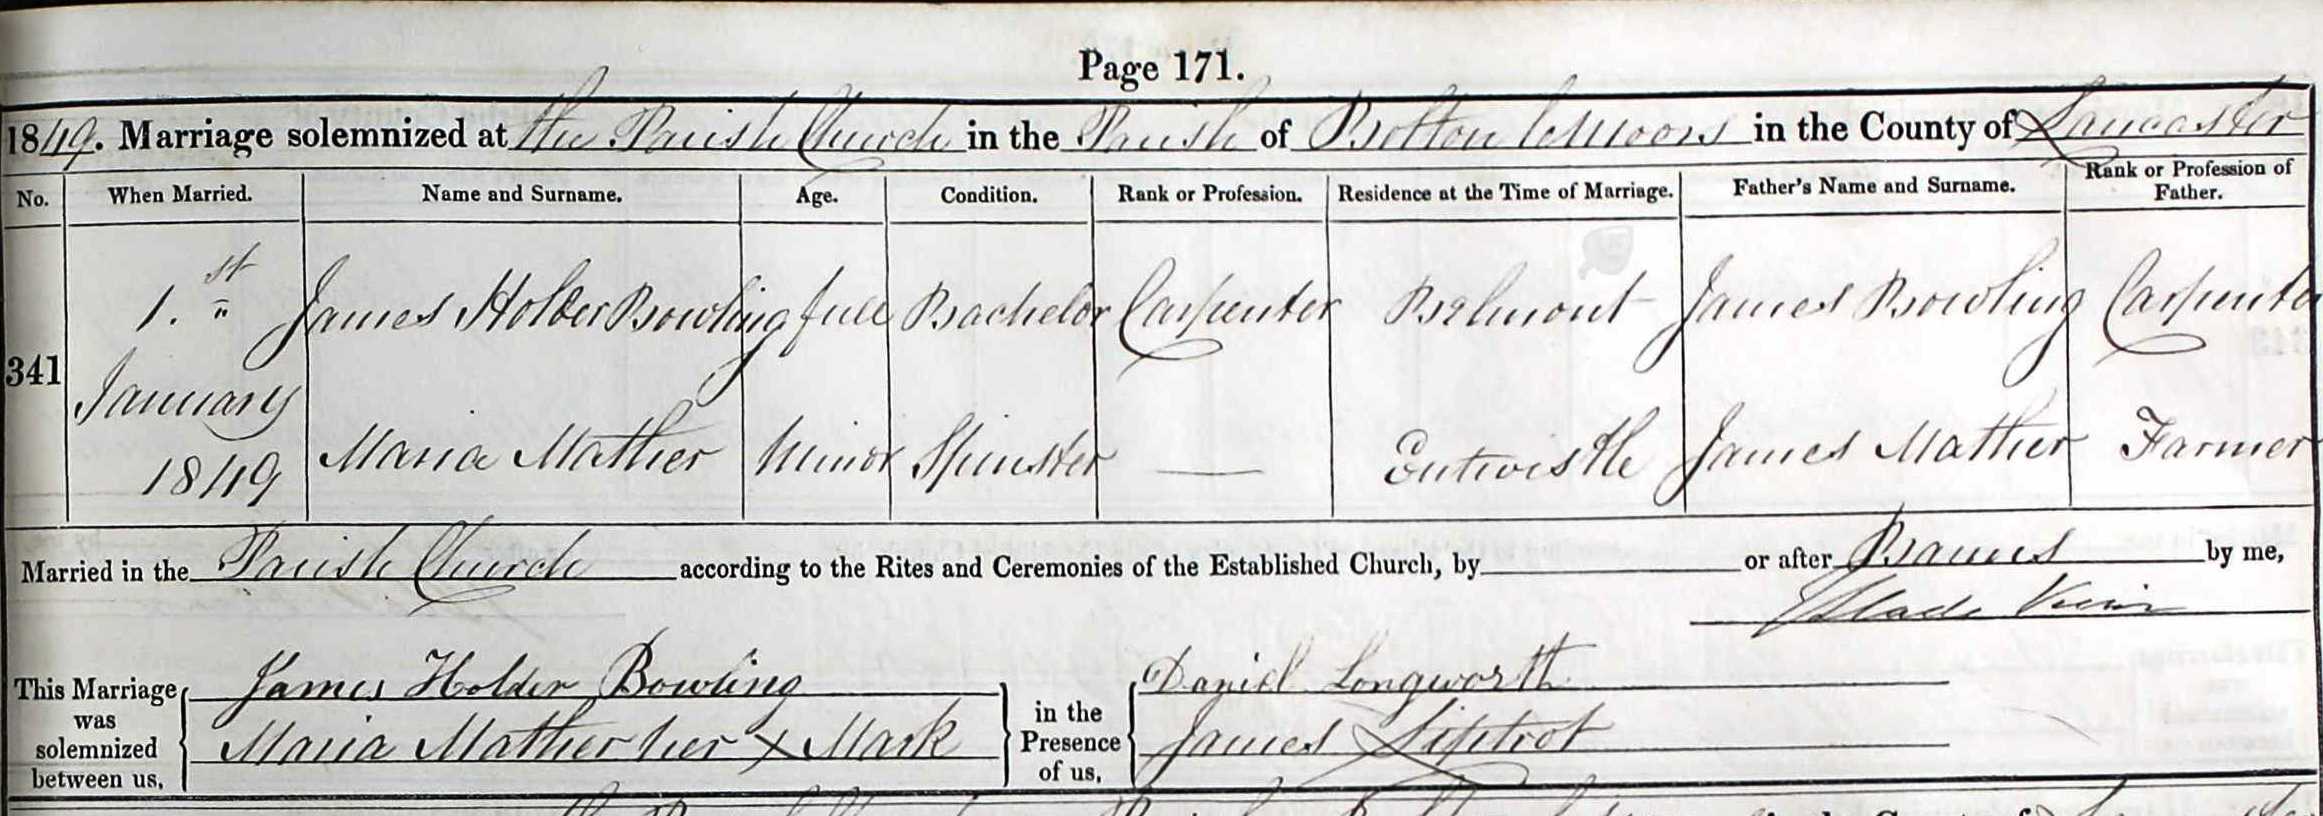 Page 171.
1849. Marriage solemnized at the Parish Church in the Parish of Bolton le Moors in the County of Lancaster
No. When Married. Name and Surname. Age. Condition. Rank or Profession. Residence at the Time of Marriage. Father's Name and Surname. Rank or Profession of Father.
341 1.st January 1849 James Holder Bowling full Bachelor Carpenter Belmont James Bowling Carpenter
Maria Mather Minor Spinster — Entwistle James Mather Farmer
Married in the Parish Church according to the Rites and Ceremonies of the Established Church, by or after Banns by me,
Slade Vicar
This Marriage was solemnized between us, James Holder Bowling in the Presence of us, Daniel Longworth
Maria Mather her x Mark James Liptrot